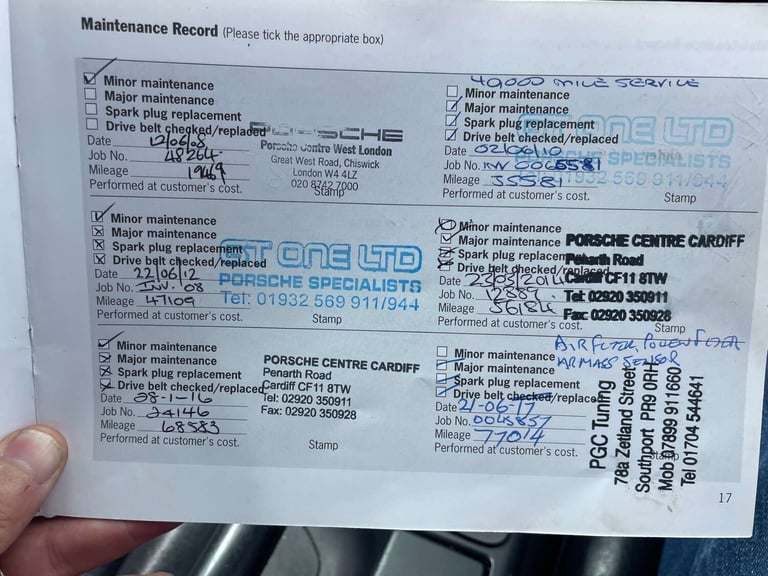 Maintenance Record (Please tick the appropriate box)
Minor maintenance
Major maintenance
Spark plug replacement
Drive belt checked/replaced
Date 12/06/08
Job No. 48264
Mileage
Performed at customer's cost.
PORSCHE
Porsche Centre West London
Great West Road, Chiswick
London W4 4LZ
020 8742 7000
Stamp
40,000 MILE SERVICE
Minor maintenance
Major maintenance
Spark plug replacement
Drive belt checked/replaced
Date 02/06/10
Job No.
Mileage 35581
Performed at customer's cost.
GT ONE LTD
PORSCHE SPECIALISTS
Tel: 01932 569 911/944
Stamp
Minor maintenance
Major maintenance
Spark plug replacement
Drive belt checked/replaced
Date 22/06/12
Job No. INV. 08
Mileage 47109
Performed at customer's cost.
GT ONE LTD
PORSCHE SPECIALISTS
Tel: 01932 569 911/944
Stamp
Minor maintenance
Major maintenance
Spark plug replacement
Drive belt checked/replaced
Date 25/03/2014
Job No. 12887
Mileage 56184
Performed at customer's cost.
PORSCHE CENTRE CARDIFF
Penarth Road
Cardiff CF11 8TW
Tel: 02920 350911
Fax: 02920 350928
Stamp
Minor maintenance
Major maintenance
Spark plug replacement
Drive belt checked/replaced
Date 28-1-16
Job No. 24146
Mileage 68583
Performed at customer's cost.
PORSCHE CENTRE CARDIFF
Penarth Road
Cardiff CF11 8TW
Tel: 02920 350911
Fax: 02920 350928
Stamp
AIR FILTER, POLLEN FILTER
AIR MASS SENSOR
Minor maintenance
Major maintenance
Spark plug replacement
Drive belt checked/replaced
Date 21-06-17
Job No. 0045857
Mileage 77014
Performed at customer's cost.
PGC Tuning
78a Zetland Street
Southport PR9 0RH
Mob 07899 911660
Tel 01704 544641
Stamp
17